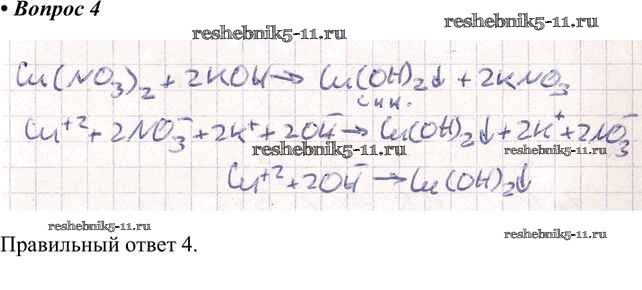 • Вопрос 4
reshebnik5-11.ru
reshebnik5-11.ru
Cu(NO₃)₂ + 2KOH → Cu(OH)₂↓ + 2KNO₃
син.
Cu⁺² + 2NO₃⁻ + 2K⁺ + 2OH⁻ → Cu(OH)₂↓ + 2K⁺ + 2NO₃⁻
reshebnik5-11.ru
reshebnik5-11.ru
Cu⁺² + 2OH⁻ → Cu(OH)₂↓
reshebnik5-11.ru
reshebnik5-11.ru
Правильный ответ 4.